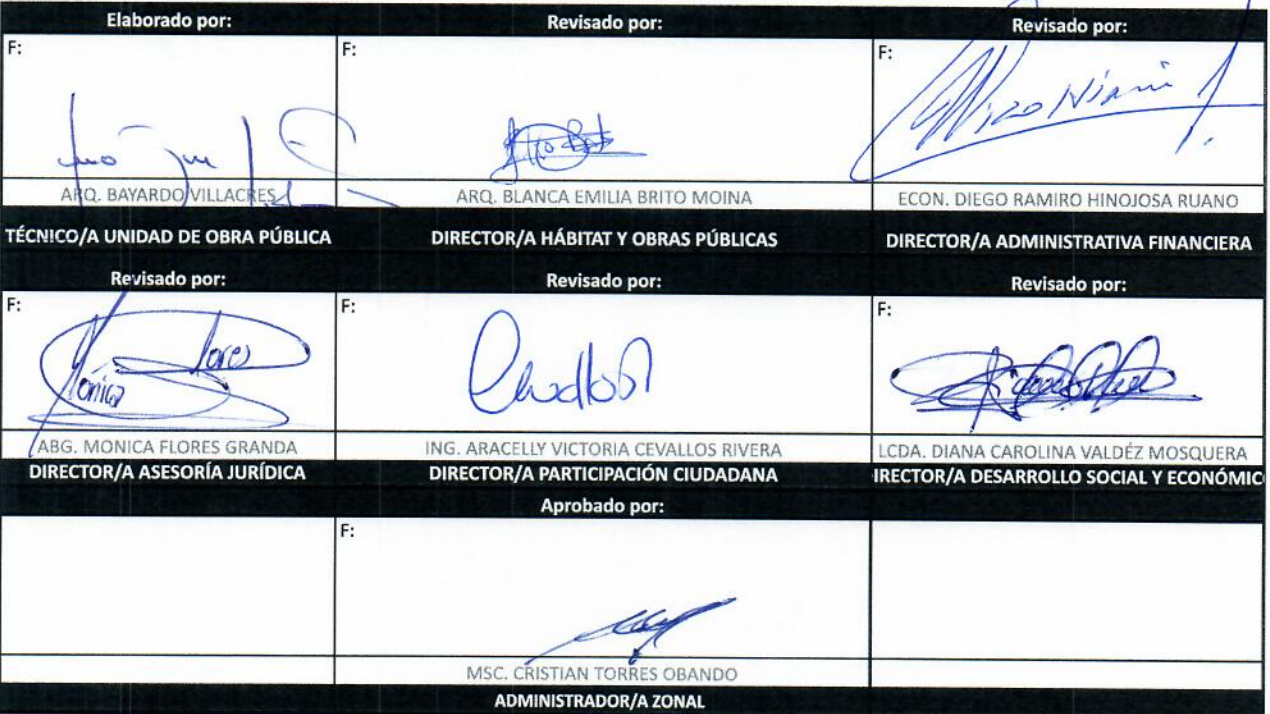 Elaborado por:
Revisado por:
Revisado por:
F:
F:
F:
ARQ. BAYARDO VILLACRES
ARQ. BLANCA EMILIA BRITO MOINA
ECON. DIEGO RAMIRO HINOJOSA RUANO
TÉCNICO/A UNIDAD DE OBRA PÚBLICA
DIRECTOR/A HÁBITAT Y OBRAS PÚBLICAS
DIRECTOR/A ADMINISTRATIVA FINANCIERA
Revisado por:
Revisado por:
Revisado por:
F:
F:
F:
Monica Flores
ABG. MONICA FLORES GRANDA
ING. ARACELLY VICTORIA CEVALLOS RIVERA
LCDA. DIANA CAROLINA VALDÉZ MOSQUERA
DIRECTOR/A ASESORÍA JURÍDICA
DIRECTOR/A PARTICIPACIÓN CIUDADANA
IRECTOR/A DESARROLLO SOCIAL Y ECONÓMIC
Aprobado por:
F:
MSC. CRISTIAN TORRES OBANDO
ADMINISTRADOR/A ZONAL